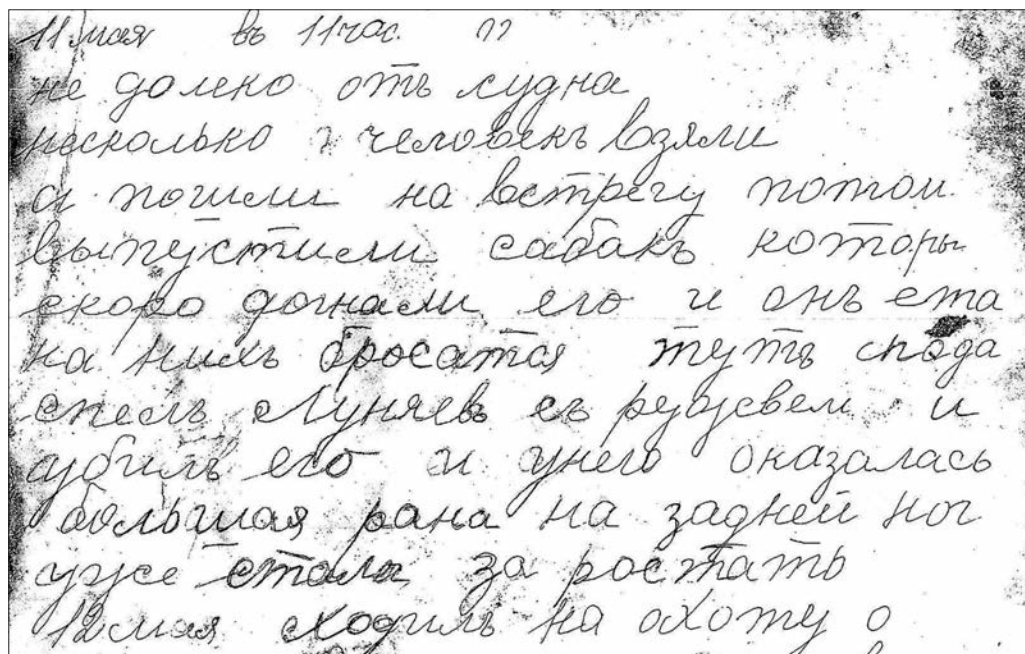 11 мая въ 11 час.
не долеко отъ судна
несколько человекъ взяли
и пошли на встречу потом
выпустили сабакъ которы
скоро догнали его и онъ ста
на нихъ бросатся тутъ спода
спелъ Луняевъ съ ружьвем и
убилъ его и унего оказалась
большая рана на задней ног
уже стала за ростать
12 мая сходилъ на охоту о